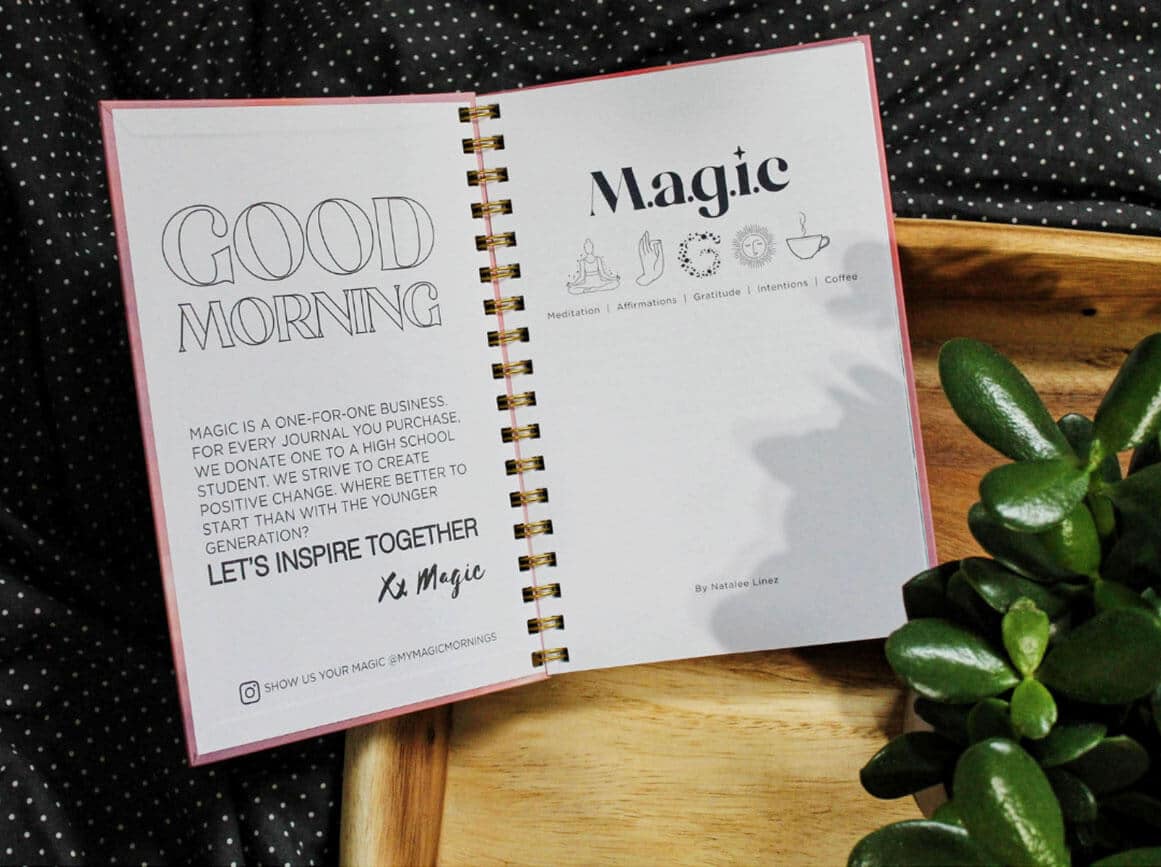 GOOD
MORNING
MAGIC IS A ONE-FOR-ONE BUSINESS.
FOR EVERY JOURNAL YOU PURCHASE,
WE DONATE ONE TO A HIGH SCHOOL
STUDENT. WE STRIVE TO CREATE
POSITIVE CHANGE. WHERE BETTER TO
START THAN WITH THE YOUNGER
GENERATION?
LET'S INSPIRE TOGETHER
Xx Magic
SHOW US YOUR MAGIC @MYMAGICMORNINGS
M.a.g.i.c
Meditation | Affirmations | Gratitude | Intentions | Coffee
By Natalee Linez